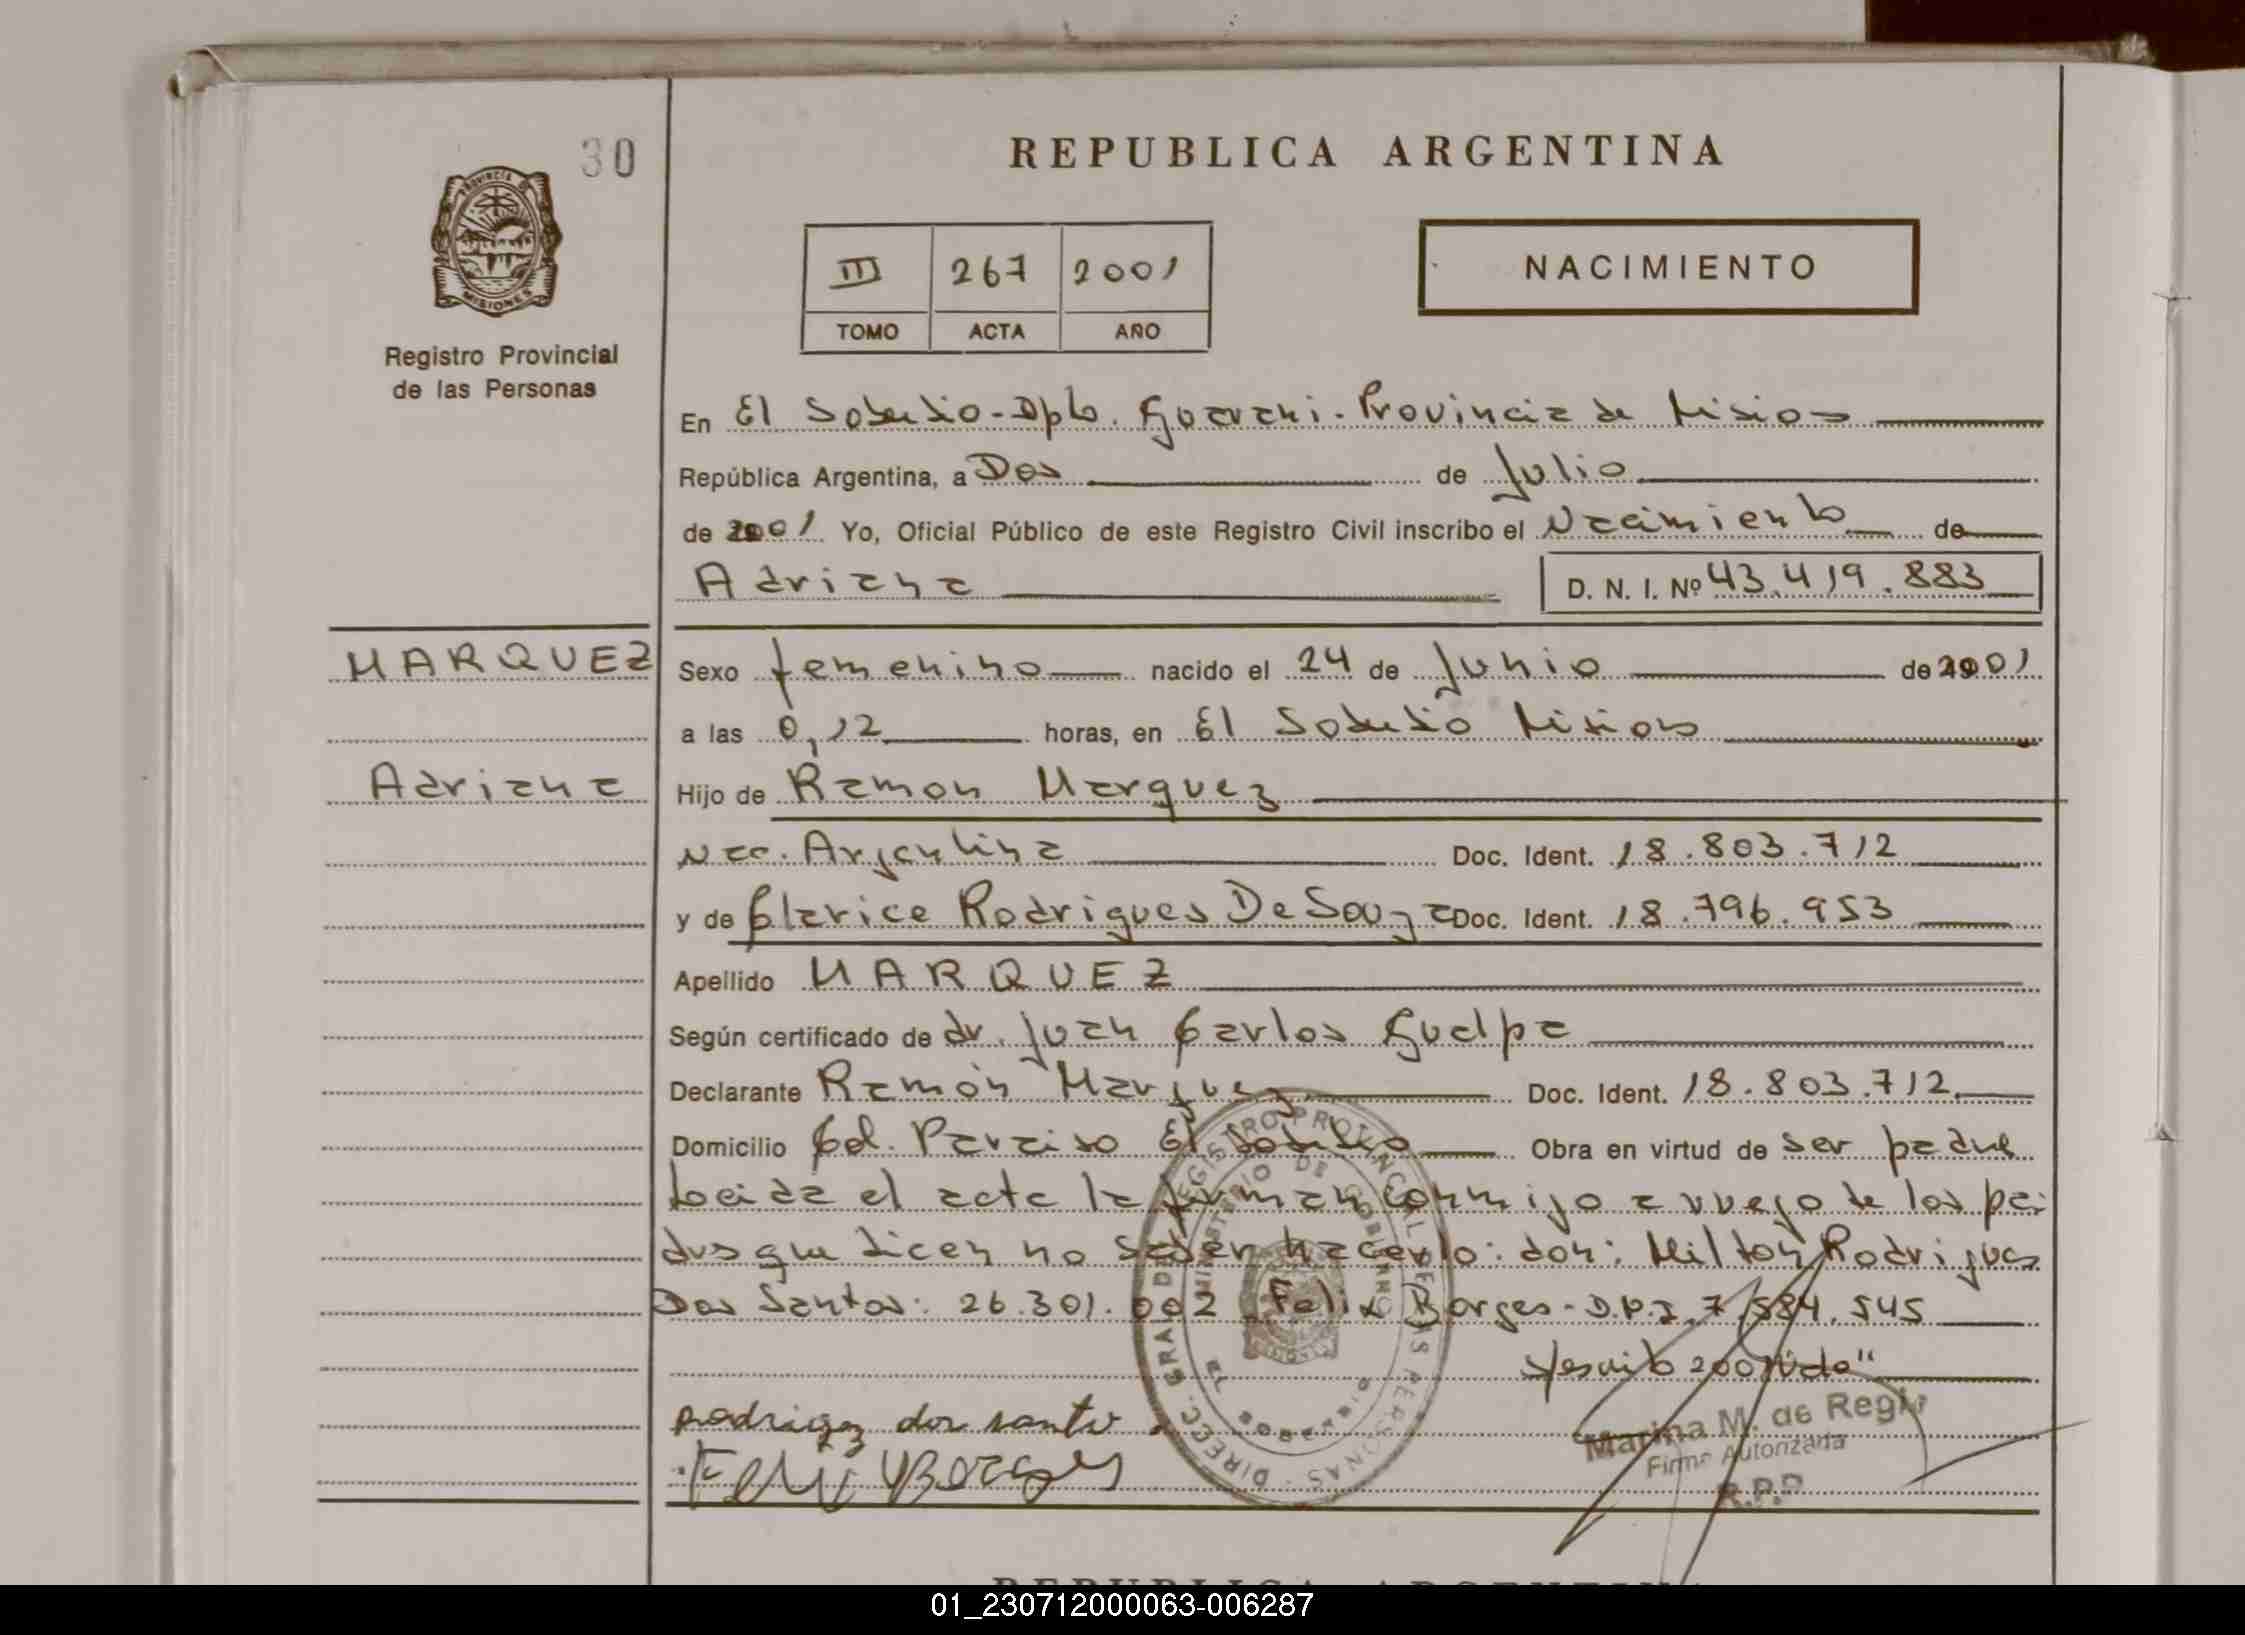 30
REPUBLICA ARGENTINA
PROVINCIA DE
MISIONES
Registro Provincial
de las Personas
III 267 2001
TOMO ACTA AÑO
NACIMIENTO
En El Soberbio - Dpto. Guarani - Provincia de Misiones
República Argentina, a Dos de Julio
de 2001 Yo, Oficial Público de este Registro Civil inscribo el Nacimiento de
Adriana D. N. I. Nº 43.419.883
MARQUEZ
Sexo femenino nacido el 24 de Junio de 2001
a las 0,12 horas, en El Soberbio Misiones
Adriana
Hijo de Ramon Marquez
Nac. Argentina Doc. Ident. 18.803.712
y de Clarice Rodrigues De Souza Doc. Ident. 18.796.953
Apellido MARQUEZ
Según certificado de dr. Juan Carlos Guelpa
Declarante Ramón Marquez Doc. Ident. 18.803.712
Domicilio Col. Paraiso El Soberbio Obra en virtud de ser padre
Leida el acta la firman conmigo a ruego de los pa
dres que dicen no saber hacerlo: don: Milton Rodrigues
Dos Santos: 26.301.002 Felix Borges - D.N.I. 7.584.545
DIRECC. GRAL. DEL REGISTRO PROVINCIAL DE LAS PERSONAS
MINISTERIO DE GOBIERNO
EL SOBERBIO
rodriguez dos santos
Felix Borges
Marina M. de Regis
Firma Autorizada
R.P.P
REPUBLICA ARGENTINA
01_230712000063-006287